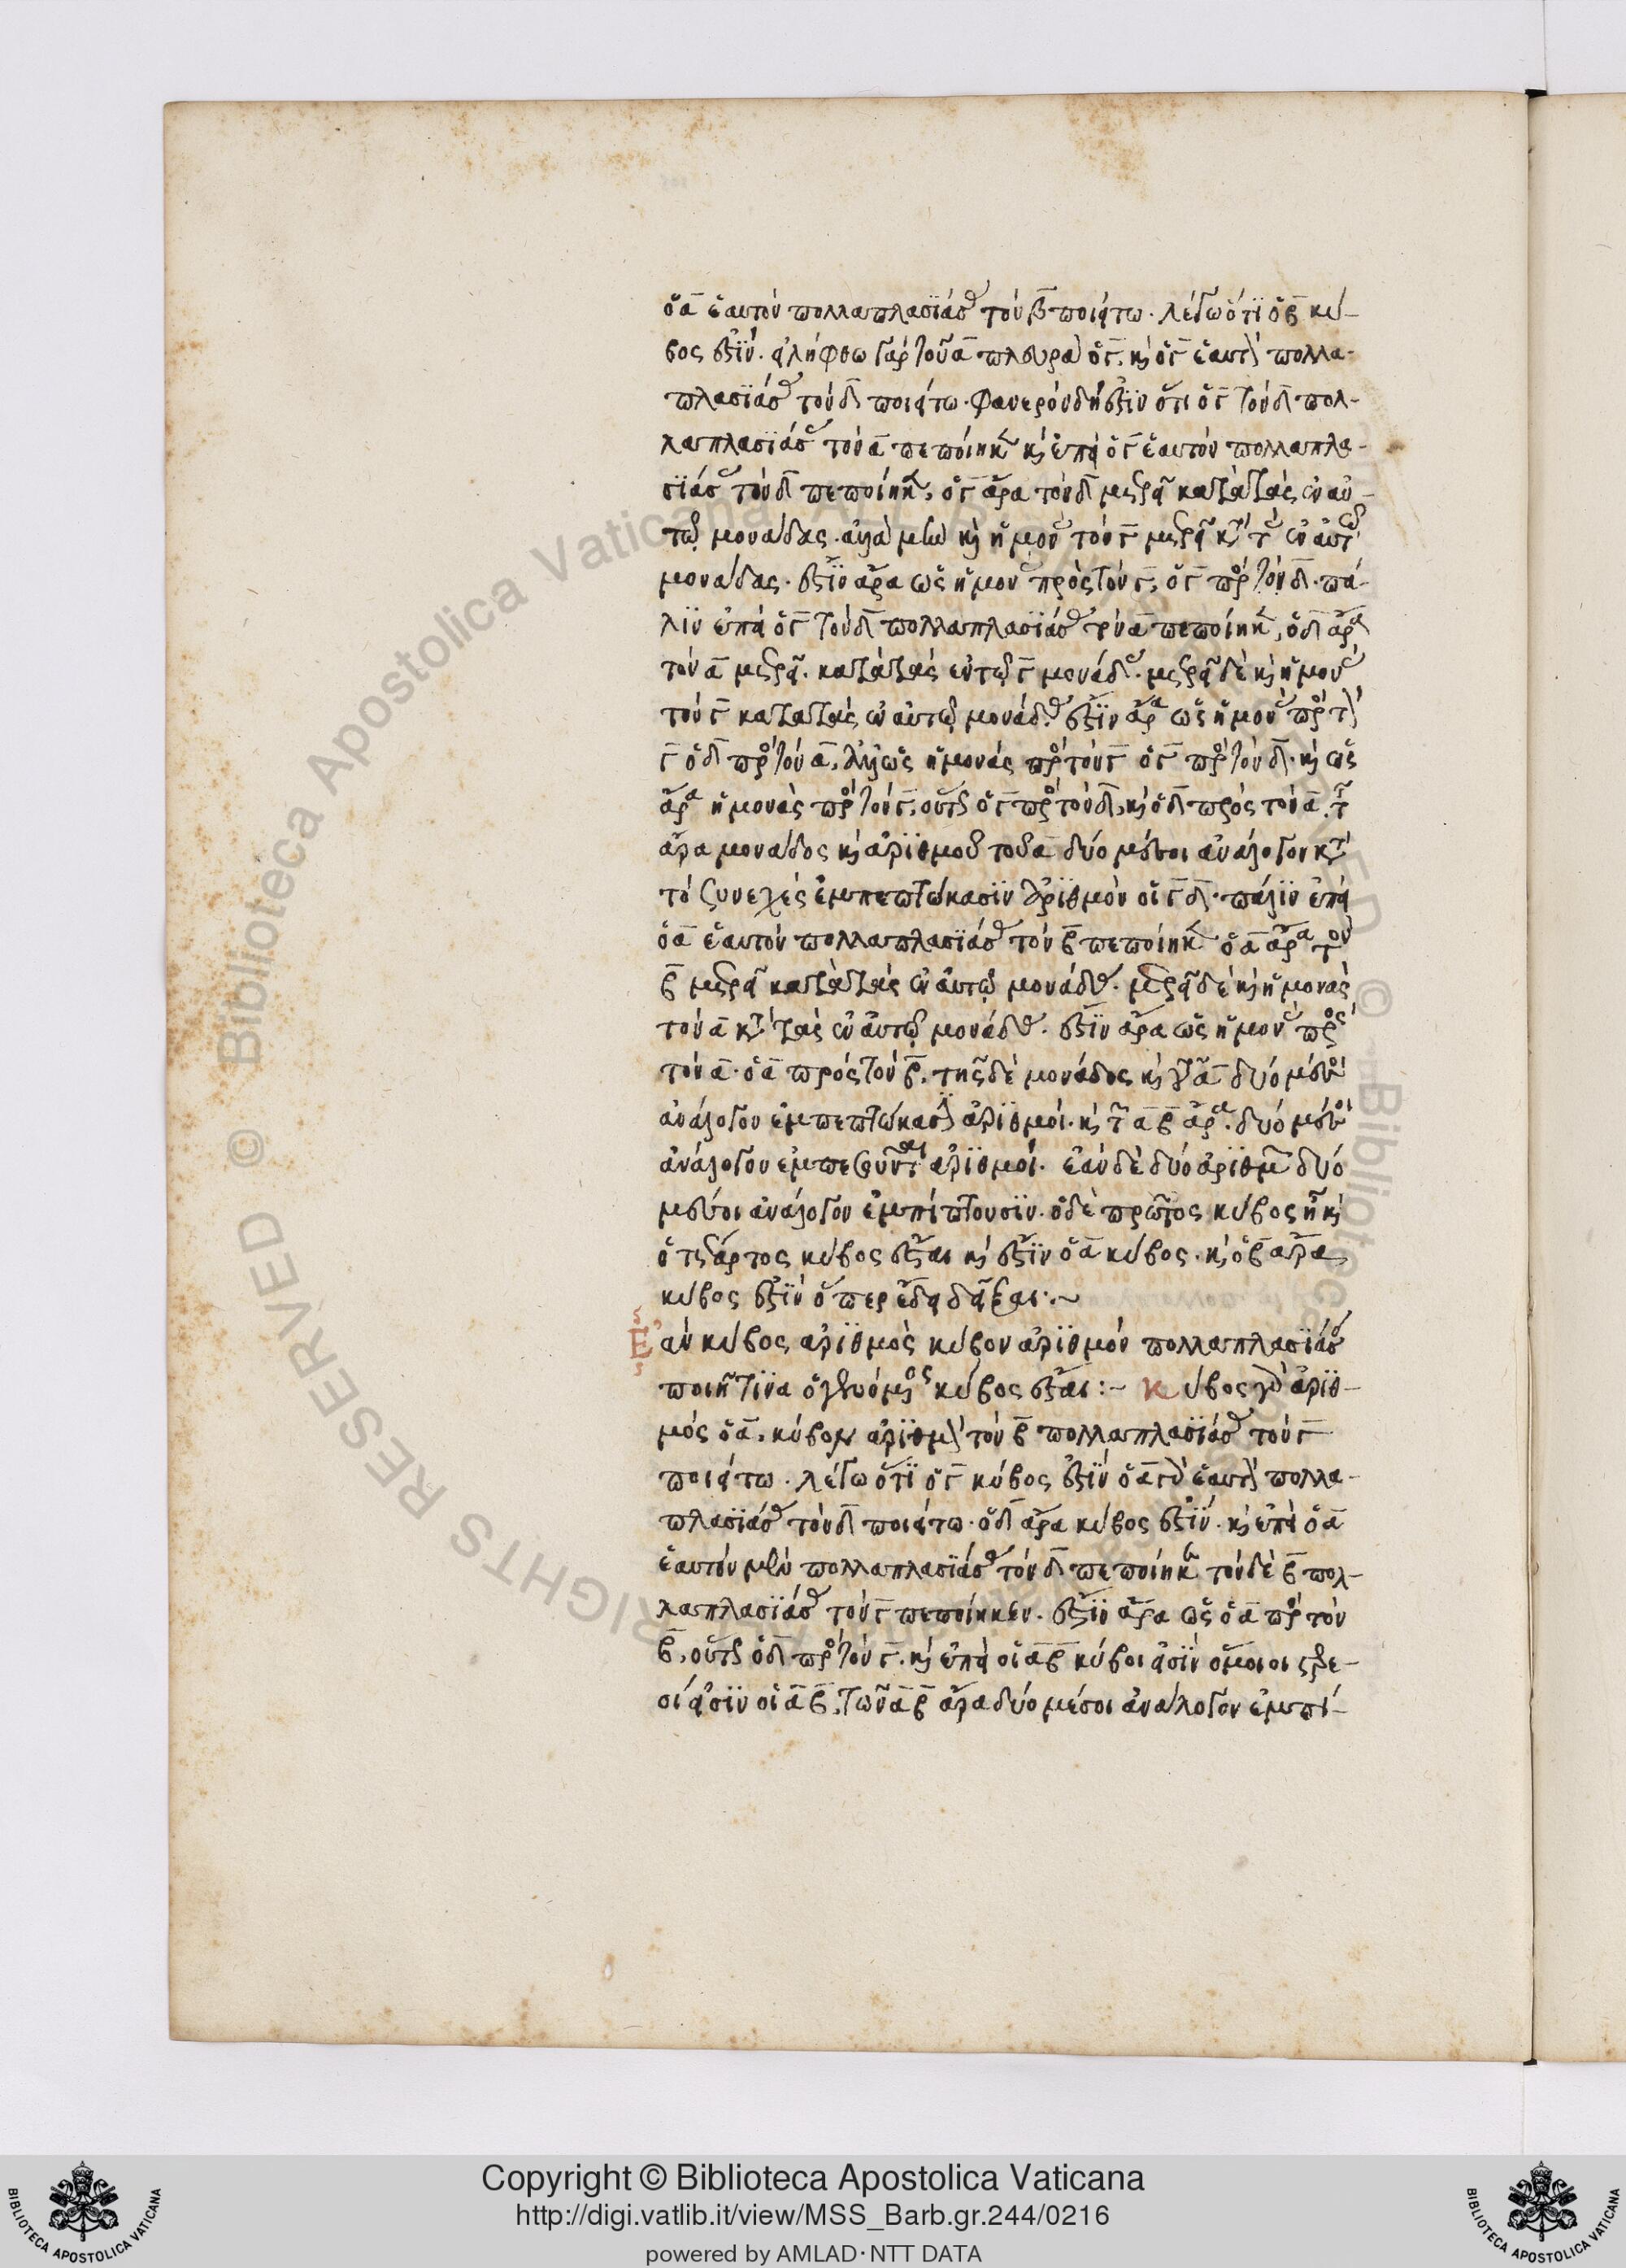 ὁ α̅ ἑαυτὸν πολλαπλασιάσας τὸν β̅ ποιείτω. λέγω ὅτι ὁ β̅ κύ-
βος ἐστίν. εἰλήφθω γὰρ τοῦ α̅ πλευρὰ ὁ γ̅. καὶ ὁ γ̅ ἑαυτὸν πολλα-
πλασιάσας τὸν δ̅ ποιείτω. φανερὸν δή ἐστιν ὅτι ὁ γ̅ τὸν δ̅ πολ-
λαπλασιάσας τὸν α̅ πεποίηκεν καὶ ἐπεὶ ὁ γ̅ ἑαυτὸν πολλαπλα-
σιάσας τὸν δ̅ πεποίηκεν, ὁ γ̅ ἄρα τὸν δ̅ μετρεῖ κατὰ τὰς ἐν αὐ-
τῷ μονάδας. ἀλλὰ μὴν καὶ ἡ μονὰς τὸν γ̅ μετρεῖ κατὰ τὰς ἐν αὐτῷ
μονάδας. ἔστιν ἄρα ὡς ἡ μονὰς πρὸς τὸν γ̅, ὁ γ̅ πρὸς τὸν δ̅. πά-
λιν ἐπεὶ ὁ γ̅ τὸν δ̅ πολλαπλασιάσας τὸν α̅ πεποίηκεν, ὁ δ̅ ἄρα
τὸν α̅ μετρεῖ. κατὰ τὰς ἐν τῷ γ̅ μονάδας. μετρεῖ δὲ καὶ ἡ μονὰς
τὸν γ̅ κατὰ τὰς ἐν αὐτῷ μονάδας. ἔστιν ἄρα ὡς ἡ μονὰς πρὸς τὸν
γ̅ ὁ δ̅ πρὸς τὸν α̅, ἀλλ' ὡς ἡ μονὰς πρὸς τὸν γ̅ ὁ γ̅ πρὸς τὸν δ̅. καὶ ὡς
ἄρα ἡ μονὰς πρὸς τὸν γ̅, οὕτως ὁ γ̅ πρὸς τὸν δ̅, καὶ ὁ δ̅ πρὸς τὸν α̅. τῆς
ἄρα μονάδος καὶ ἀριθμοῦ τοῦ α̅ δύο μέσοι ἀνάλογον κατὰ
τὸ συνεχὲς ἐμπεπτώκασιν ἀριθμὸν οἱ γ̅ δ̅. πάλιν ἐπεὶ
ὁ α̅ ἑαυτὸν πολλαπλασιάσας τὸν β̅ πεποίηκεν ὁ α̅ ἄρα τὸν
β̅ μετρεῖ κατὰ τὰς ἐν αὐτῷ μονάδας. μετρεῖ δὲ καὶ ἡ μονὰς
τὸν α̅ κατὰ τὰς ἐν αὐτῷ μονάδας. ἔστιν ἄρα ὡς ἡ μονὰς πρὸς
τὸν α̅. ὁ α̅ πρὸς τὸν β̅. τῆς δὲ μονάδος καὶ τοῦ α̅ δύο μέσοι
ἀνάλογον ἐμπεπτώκασιν ἀριθμοί. καὶ τῶν α̅ β̅ ἄρα. δύο μέσοι
ἀνάλογον ἐμπεσοῦνται ἀριθμοί. ἐὰν δὲ δύο ἀριθμῶν δύο
μέσοι ἀνάλογον ἐμπίπτουσιν. ὁ δὲ πρῶτος κύβος ᾖ καὶ
ὁ τέταρτος κύβος ἔσται καὶ ἔστιν ὁ α̅ κύβος. καὶ ὁ β̅ ἄρα
κύβος ἐστὶν ὅπερ ἔδει δεῖξαι:~
Ἐὰν κύβος ἀριθμὸς κύβον ἀριθμὸν πολλαπλασιάσας
ποιῇ τινα ὁ γενόμενος κύβος ἔσται:~ Κύβος γὰρ ἀριθ-
μὸς ὁ α̅. κύβον ἀριθμὸν τὸν β̅ πολλαπλασιάσας τὸν γ̅
ποιείτω. λέγω ὅτι ὁ γ̅ κύβος ἐστίν ὁ α̅ γὰρ ἑαυτὸν πολλα-
πλασιάσας τὸν δ̅ ποιείτω. ὁ δ̅ ἄρα κύβος ἐστίν. καὶ ἐπεὶ ὁ α̅
ἑαυτὸν μὲν πολλαπλασιάσας τὸν δ̅ πεποίηκεν τὸν δὲ β̅ πολ-
λαπλασιάσας τὸν γ̅ πεποίηκεν. ἔστιν ἄρα ὡς ὁ α̅ πρὸς τὸν
β̅, οὕτως ὁ δ̅ πρὸς τὸν γ̅. καὶ ἐπεὶ οἱ α̅ β̅ κύβοι εἰσὶν ὅμοιοι στερε-
οί εἰσιν οἱ α̅ β̅, τῶν α̅ β̅ ἄρα δύο μέσοι ἀνάλογον ἐμπί-
Copyright © Biblioteca Apostolica Vaticana
http://digi.vatlib.it/view/MSS_Barb.gr.244/0216
powered by AMLAD·NTT DATA